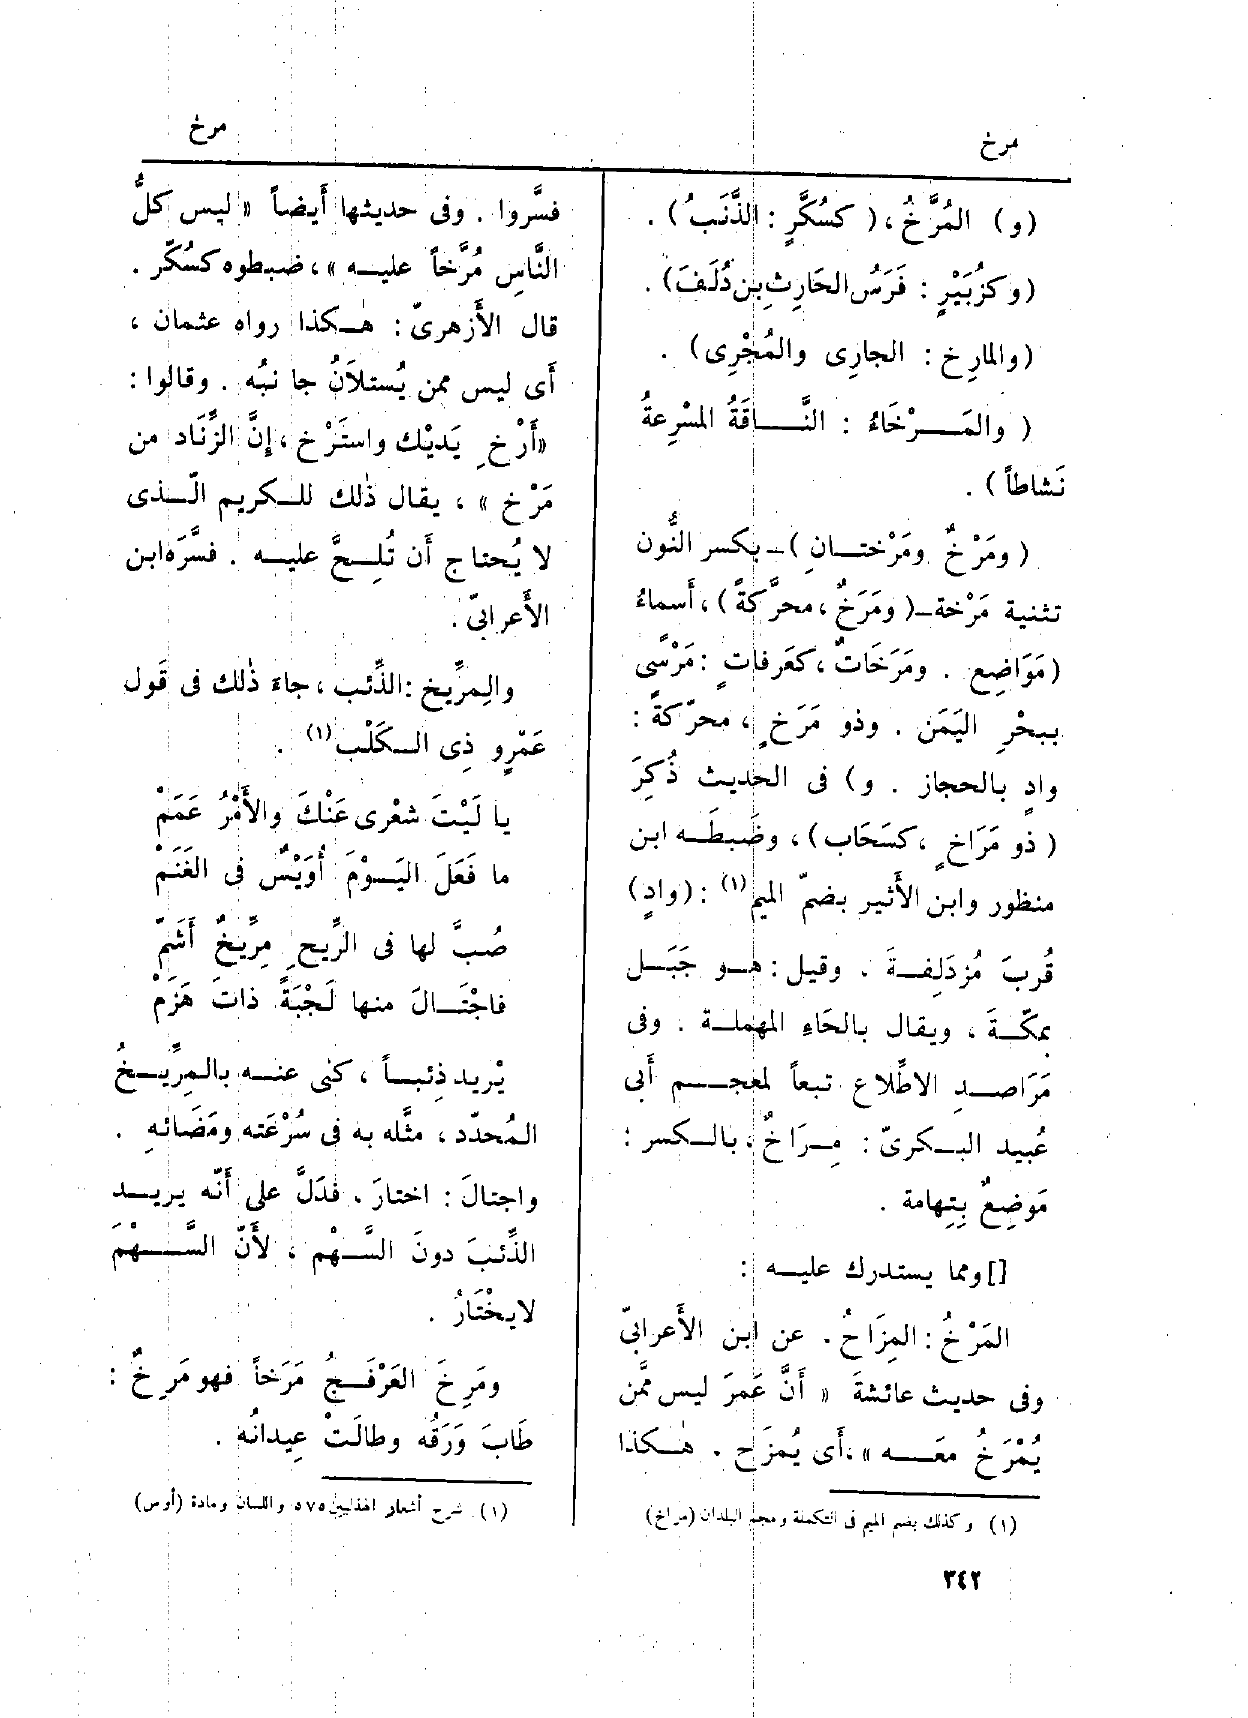 مرخ
مرخ
(و) المُرَّخُ، (كسُكَّرٍ : الذَّنَبُ) .
(وكزُبَيْرٍ : فَرَسُ الحَارِثِ بن دُلَفَ) .
(والمارِخ : الجارِى والمُجْرِى) .
( والمَـرْخَاءُ : النَّـاقَةُ المسْرِعةُ
نَشاطاً ) .
( ومَرْخٌ ومَرْختـانِ )ــ بكسر النُّون
تثنية مَرْخة ــ( ومَرَخٌ ، محرَّكةً ) ، أَسماءُ
(مَوَاضِع . ومَرَخَاتٌ ، كعَرفاتٍ : مَرْسًى
ببحْرِ اليَمَن . وذو مَرَخٍ ، محرّكةً :
وادٍ بالحجاز . و) فى الحديث ذُكِرَ
( ذو مَرَاخٍ ، كسَحَاب ) ، وضَبطَـه ابن
منظور وابن الأَثير بضمّ الميم (١) : (وادٍ)
قُربَ مُزدَلِفـةَ . وقيل : هـو جَبَـل
بمكّـةَ ، ويقال بالحَاءِ المهملـة . وفى
مَرَاصـدِ الاطِّلاع تبعاً لمعجـم أَبى
عُبيد البـكرىّ : مِـرَاخٌ ، بالـكسر :
مَوضِعٌ بِتِهامة .
[] ومما يستدرك عليـه :
المَرْخُ : المِزَاحُ . عن ابن الأَعرابىّ
وفى حديث عائشةَ « أَنَّ عَمرَ ليس ممَّن
يُمْرَخُ معَـه » ، أَى يُمزَح . هٰـكذا
(١) وكذلك بضم الميم فى التكملة ومعجم البلدان (مراخ)
فسَّروا . وفى حديثها أَيضاً « ليس كلُّ
النَّاسِ مُرَّخاً عليـه » ، ضبطوه كسُكّر .
قال الأَزهرىّ : هٰـكذا رواه عثمان ،
أَى ليس ممن يُستلاَنُ جا نبُه . وقالوا :
«أَرْخِ يَدَيْك واستَرْخ ، إِنَّ الزِّنَاد من
مَرْخ » ، يقال ذٰلك للـكريم الّـذى
لا يُحتاج أَن تُلِـحَّ عليـه . فسَّرَه ابن
الأَعرابىّ .
والمِرِّيخ : الذِّئب ، جاءَ ذٰلك فى قَول
عَمْرٍو ذِى الـكَلْب (١) .
يا لَيْتَ شعْرى عَنْكَ والأَمْرُ عَمَمْ
ما فَعَلَ اليَـوْمَ أُوَيْسٌ فى الغَنَمْ
صُبَّ لها فى الرِّيحِ مِرِّيخٌ أَشَمّ
فاجْتَـالَ منها لَجْبَةً ذاتَ هَزَمْ
يُريد ذِئبـاً ، كنى عنـه بالـمِرِّيـخُ
المُحدّد ، مثَّله به فى سُرْعَته ومَضَائهِ .
واجتالَ : اختارَ . فدَلَّ على أَنّه يريـد
الذِّئبَ دونَ السَّـهْم ، لأَنّ السَّـهْمَ
لا يخْتَارُ .
ومَرِخَ العَرْفَـجُ مَرَخاً فهو مَرِخٌ :
طَابَ وَرَقُه وطالَتْ عِيدانُه .
(١) شرح أشعار الهذليين ٥٧٥ واللسان ومادة (أوس)
٣٤٢